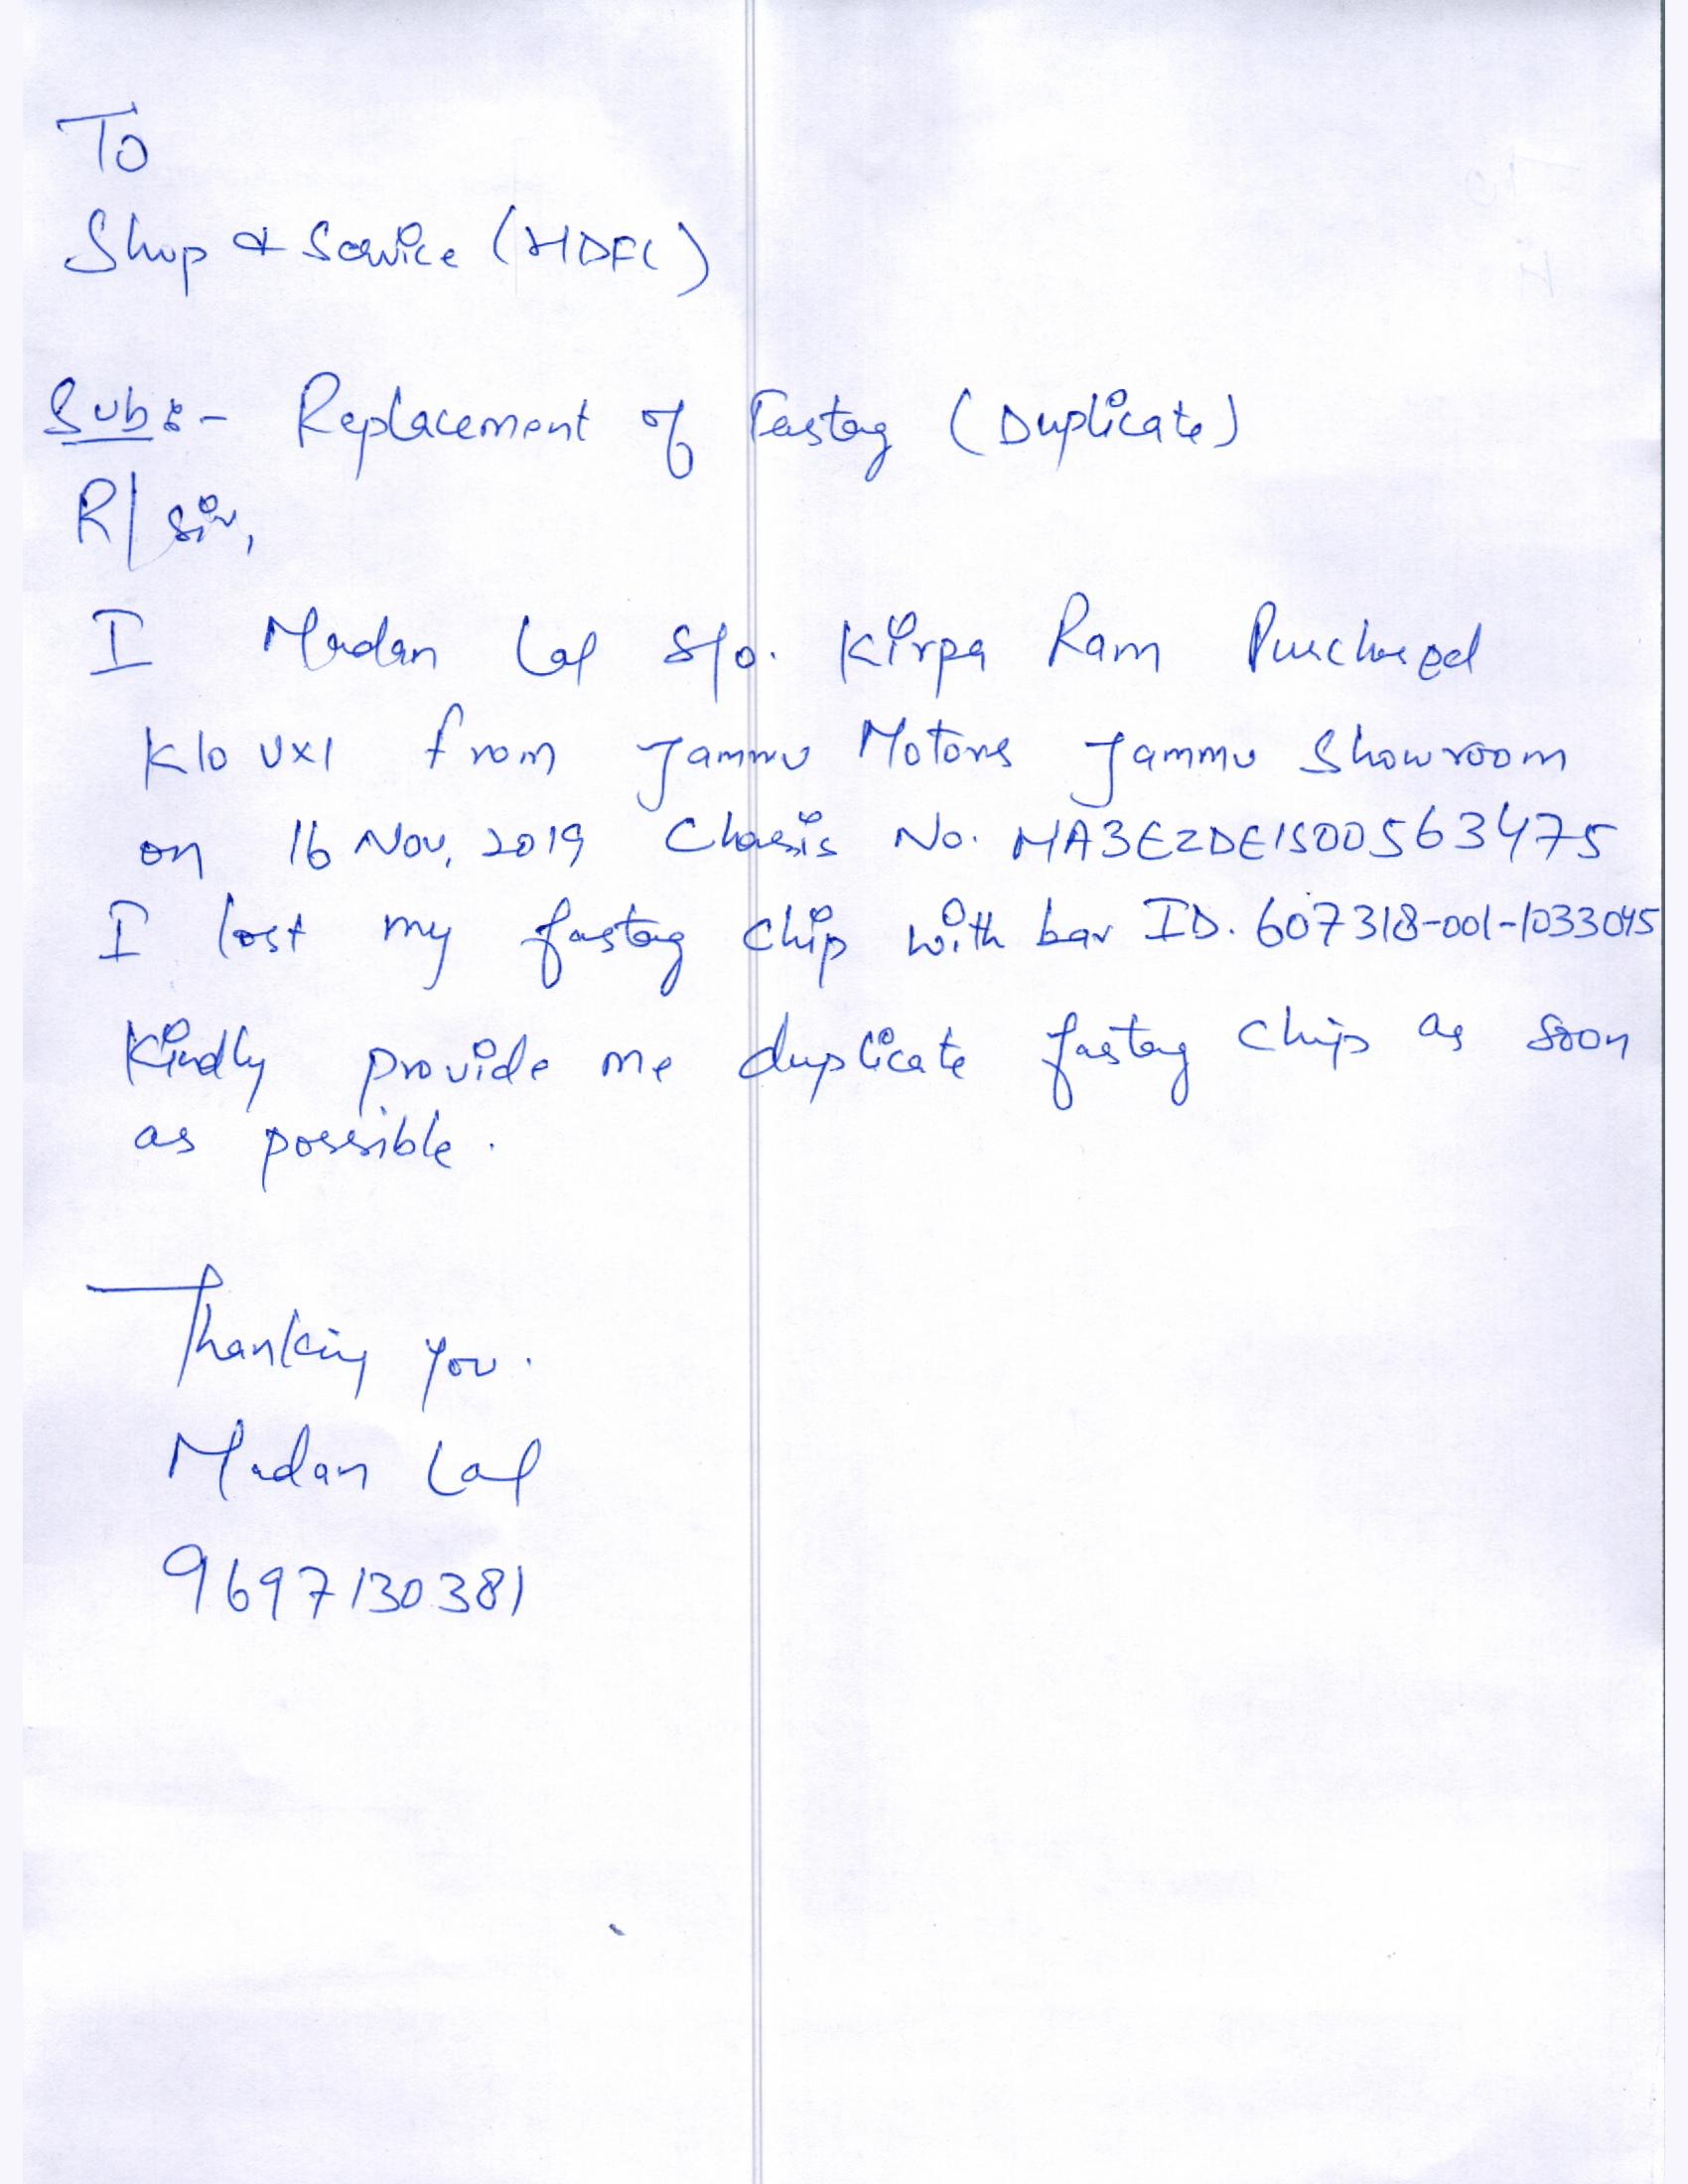 To
Shop & Service (HDFC)
Sub:- Replacement of Fastag (Duplicate)
R/ sir,
I Madan Lal S/o. Kirpa Ram Purchased
K10 VXI from Jammu Motors Jammu Showroom
on 16 Nov, 2019 Chassis No. MA3EZDE1S00563475
I lost my fastag chip with bar ID. 607318-001-1033045
Kindly provide me duplicate fastag chip as soon
as possible.
Thanking you.
Madan Lal
9697130381